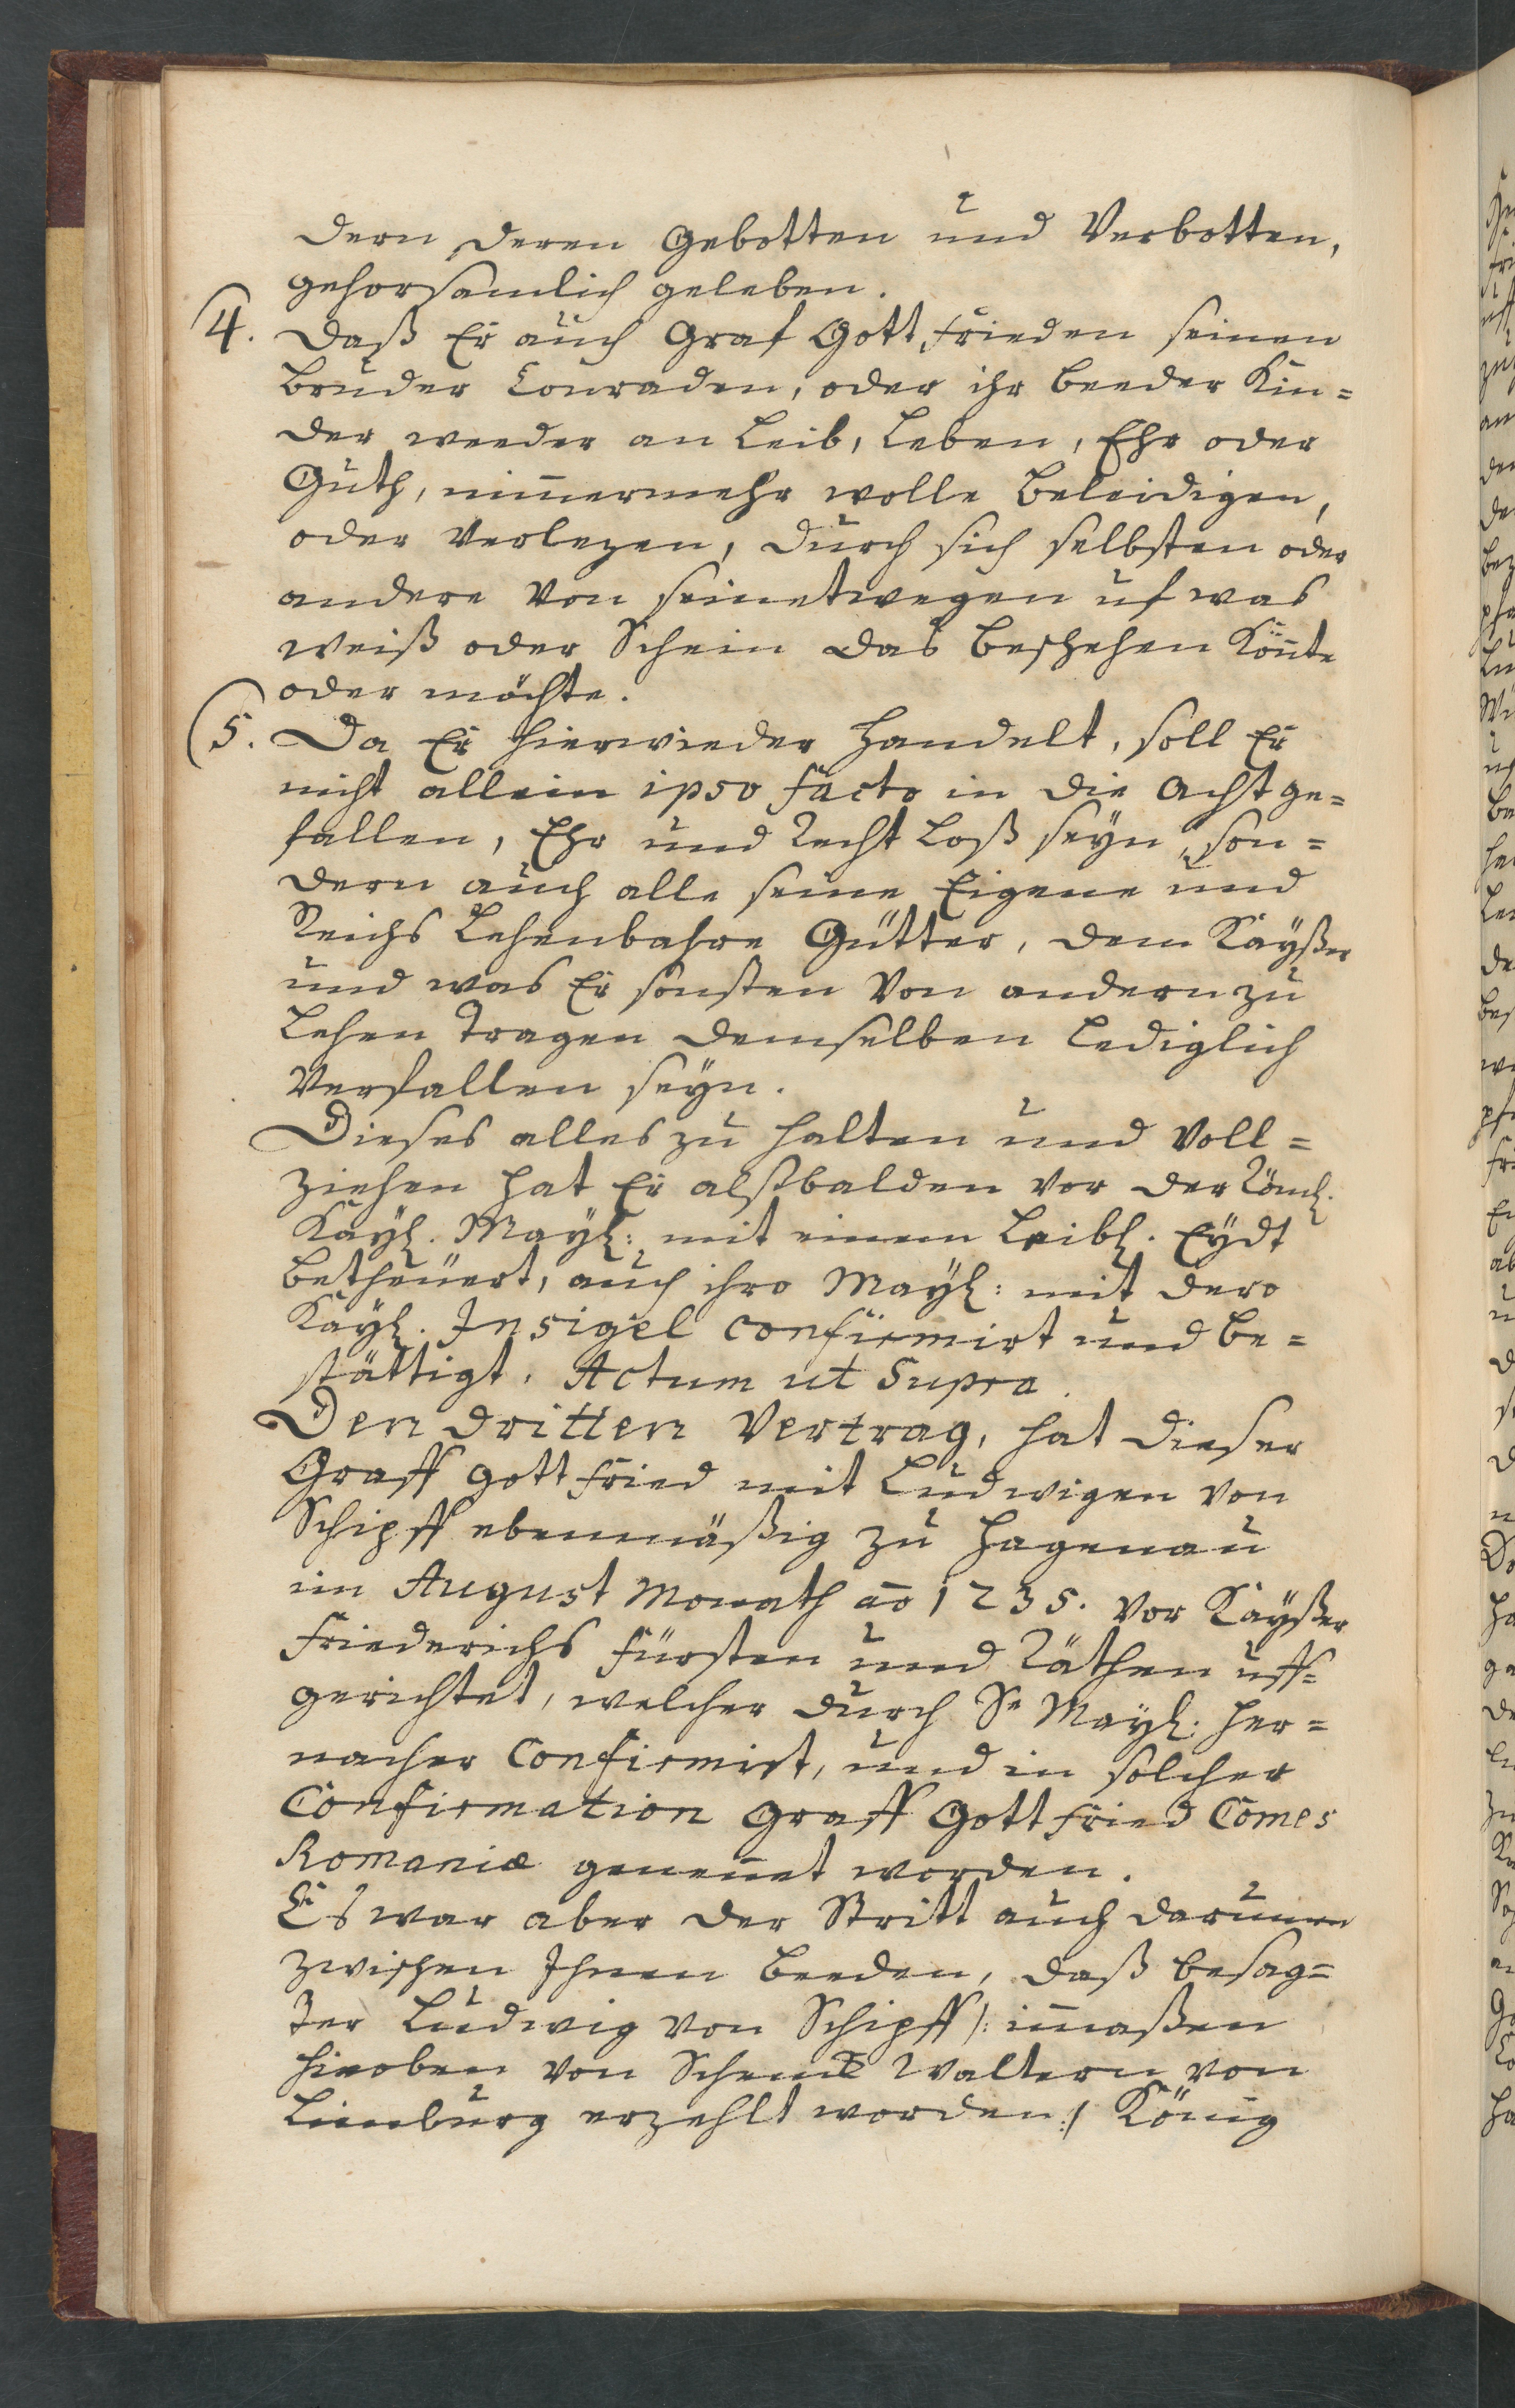 dern deren Gebotten und Verbotten,
gehorsamlich geleben.
4. Daß Er auch Graf Gottfrieden seinen
Bruder Conraden, oder ihr beeder Kin=
der weeder an Leib, Leben, Ehr oder
Guth, nim̄ermehr wolle beleidigen,
oder verlezen, durch sich selbsten oder
andere von seinetwegen uf was
weiß oder Schein das beschehen kön̄te
oder möchte.
5. Da Er hierwieder handelt, soll Er
nicht allein ipso facto in die Acht ge=
fallen, Ehr und Recht Loß seyn, son=
dern auch alle seine Eigene und
Reichs Lehenbahre Gütter, dem Kayßer
und was Er sonsten von andern zu
Lehen tragen demselben Lediglich
verfallen seyn.
Dieses alles zu halten und voll=
ziehen hat Er alßbalden vor der Röml.
Kayl. Mayl: mit einem Leibl. Eydt
betheuert, auch ihro Mayl: mit dero
Kayl. Insigel confirmirt und be=
stättigt. Actum ut Supra.
Den dritten Vertrag, hat dieser
Graff Gottfried mit Ludwigen von
Schipff ebenmäßig zu Hagenau
im August Monath aō 1235. vor Kayßer
Friederichs Fürsten und Räthen uff=
gerichtet, welcher durch Se Mayl. her=
nacher Confirmirt, und in solcher
Confirmation Graff Gottfried Comes
Romaniæ genen̄et worden.
Es war aber der Stritt auch darum̄en
zwischen Ihnen beeden, daß besag=
ter Ludwig von Schipff /: im̄aßen
hieoben von Schenck Waltern von
Limburg erzehlt worden :/ König